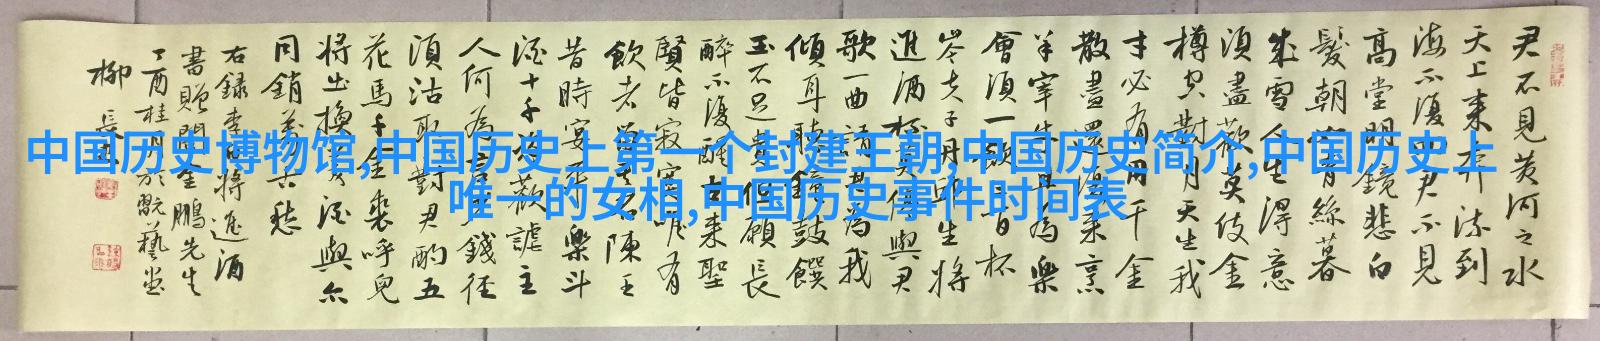 君不見黃河之水
天上來奔流到
海不復回君不見
高堂明鏡悲白
髮朝如青絲暮
成雪人生得意
須盡歡莫使金
樽空對月天生我
才必有用千金
散盡還復來烹
羊宰牛且為樂
會須一飲三百杯
岑夫子丹丘生將
進酒杯莫停與君
歌一曲請君為我
傾耳聽鐘鼓饌
玉不足貴但願長
醉不復醒古來聖
賢皆寂寞唯有
飲者留其名陳王
昔時宴平樂斗
酒十千恣歡謔主
人何為言少錢徑
須沽取對君酌五
花馬千金裘呼兒
將出換美酒與爾
同銷萬古愁
右錄李白將進酒
書贈閆金鵬先生
丁酉桂月於翫藝堂
柳長
中国历史博物馆,中国历史上第一个封建王朝,中国历史简介,中国历史上
唯一的女相,中国历史事件时间表